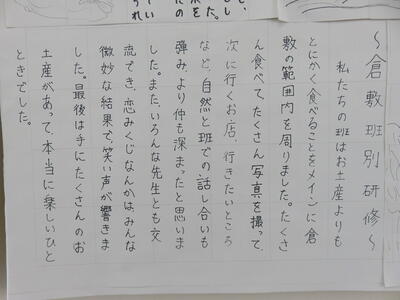 ～倉敷班別研修～
私たちの班はお土産よりも
とにかく食べることをメインに倉
敷の範囲内を周りました。たくさ
ん食べて、たくさん写真を撮って、
次に行くお店、行きたいところ
など、自然と班での話し合いも
弾み、より仲も深まったと思いま
した。また、いろんな先生とも交
流でき、恋みくじなんかは、みんな
微妙な結果で、笑い声が響きま
した。最後は手にたくさんのお
土産があって、本当に楽しいひと
ときでした。